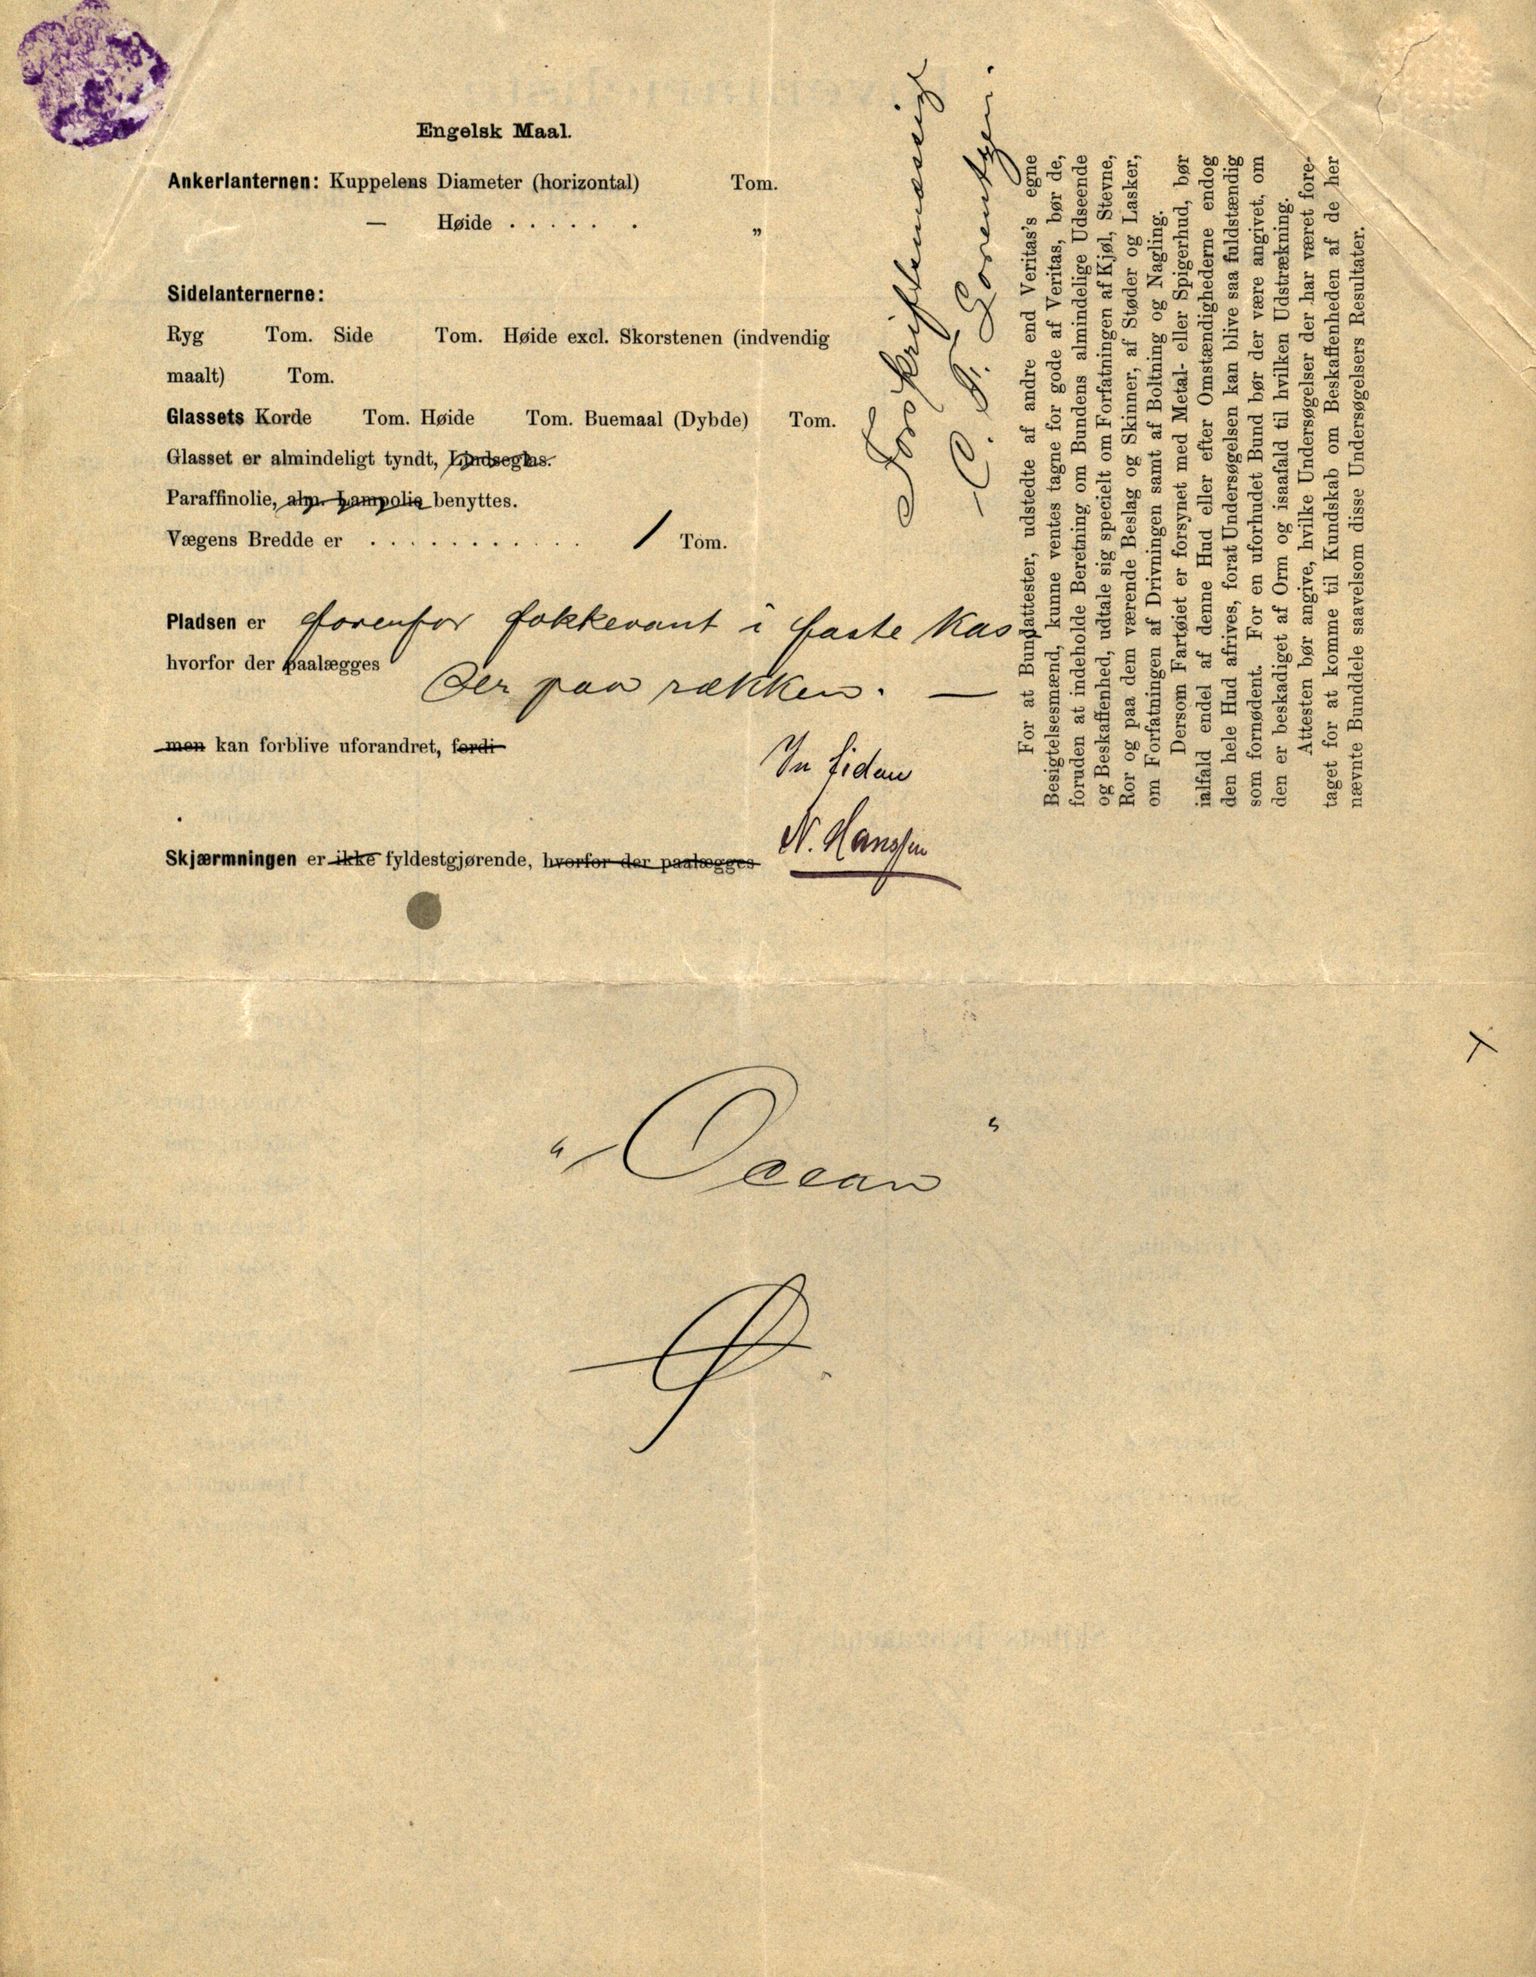 Engelsk Maal.
Ankerlanternen: Kuppelens Diameter (horizontal) Tom.
— Høide . . . . . . „
Sidelanternerne:
Ryg Tom. Side Tom. Høide excl. Skorstenen (indvendig
maalt) Tom.
Glassets Korde Tom. Høide Tom. Buemaal (Dybde) Tom.
Glasset er almindeligt tyndt, Lindseglas.
Paraffinolie, alm. Lampolie benyttes.
Vægens Bredde er . . . . . . . . . . . 1 Tom.
Pladsen er forenfor fokkevant i faste Kas-
hvorfor der paalægges
ser paa rækken. —
men kan forblive uforandret, fordi
In fidem
N. Hanssen
Skjærmningen er ikke fyldestgjørende, hvorfor der paalægges
Forskriftsmæssig
C. F. Lorentzen.
For at Bundattester, udstedte af andre end Veritas's egne
Besigtelsesmænd, kunne ventes tagne for gode af Veritas, bør de,
foruden at indeholde Beretning om Bundens almindelige Udseende
og Beskaffenhed, udtale sig specielt om Forfatningen af Kjøl, Stevne,
Ror og paa dem værende Beslag og Skinner, af Støder og Lasker,
om Forfatningen af Drivningen samt af Boltning og Nagling.
Dersom Fartøiet er forsynet med Metal- eller Spigerhud, bør
ialfald endel af denne Hud eller efter Omstændighederne endog
den hele Hud afrives, forat Undersøgelsen kan blive saa fuldstændig
som fornødent. For en uforhudet Bund bør der være angivet, om
den er beskadiget af Orm og isaafald til hvilken Udstrækning.
Attesten bør angive, hvilke Undersøgelser der har været fore-
taget for at komme til Kundskab om Beskaffenheden af de her
nævnte Bunddele saavelsom disse Undersøgelsers Resultater.
"Ocean"